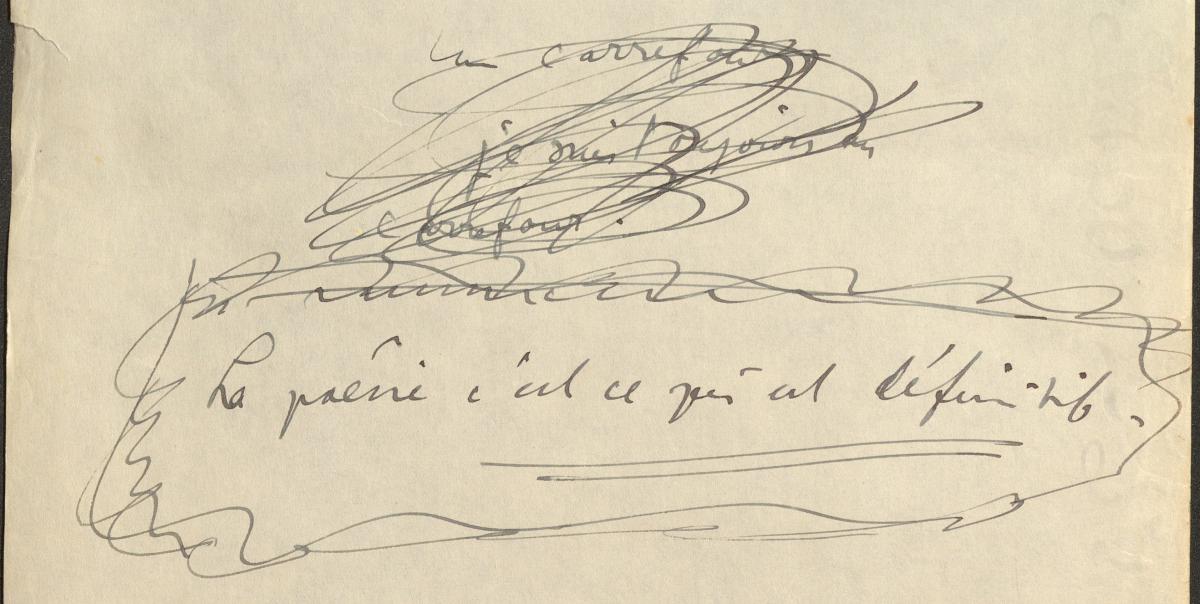 un carrefour
je suis toujours au
carrefour.
La poésie c'est ce qui est définitif.